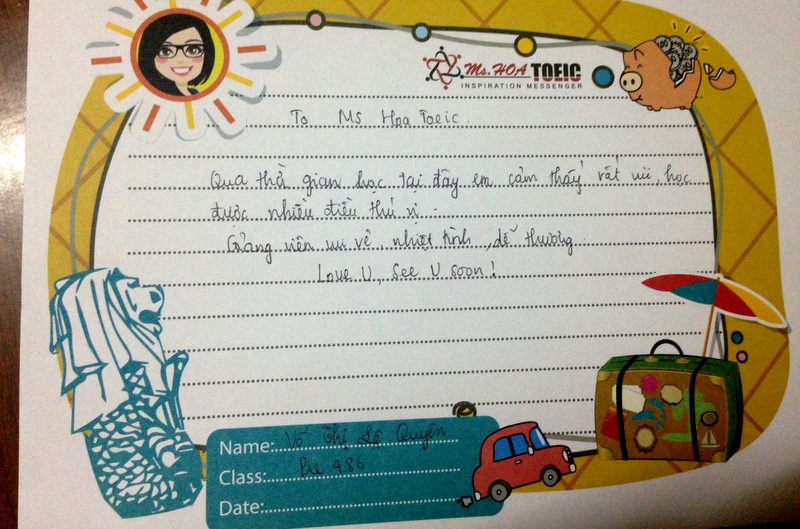 Ms. HOA TOEIC
INSPIRATION MESSENGER
To Ms Hoa Toeic.
Qua thờ gian học tại đây em cảm thấy rất vui, học
được nhiều điều thú vị.
Giảng viên vui vẻ nhiệt tình, dễ thương
Love U, See U soon!
Name: Võ Thị Lệ Quyên
Class: Pre 486
Date: